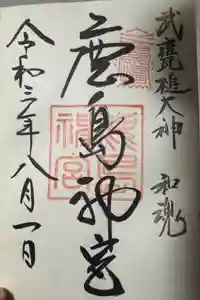 武甕槌大神 和魂
鹿島神宮
令和三年八月一日